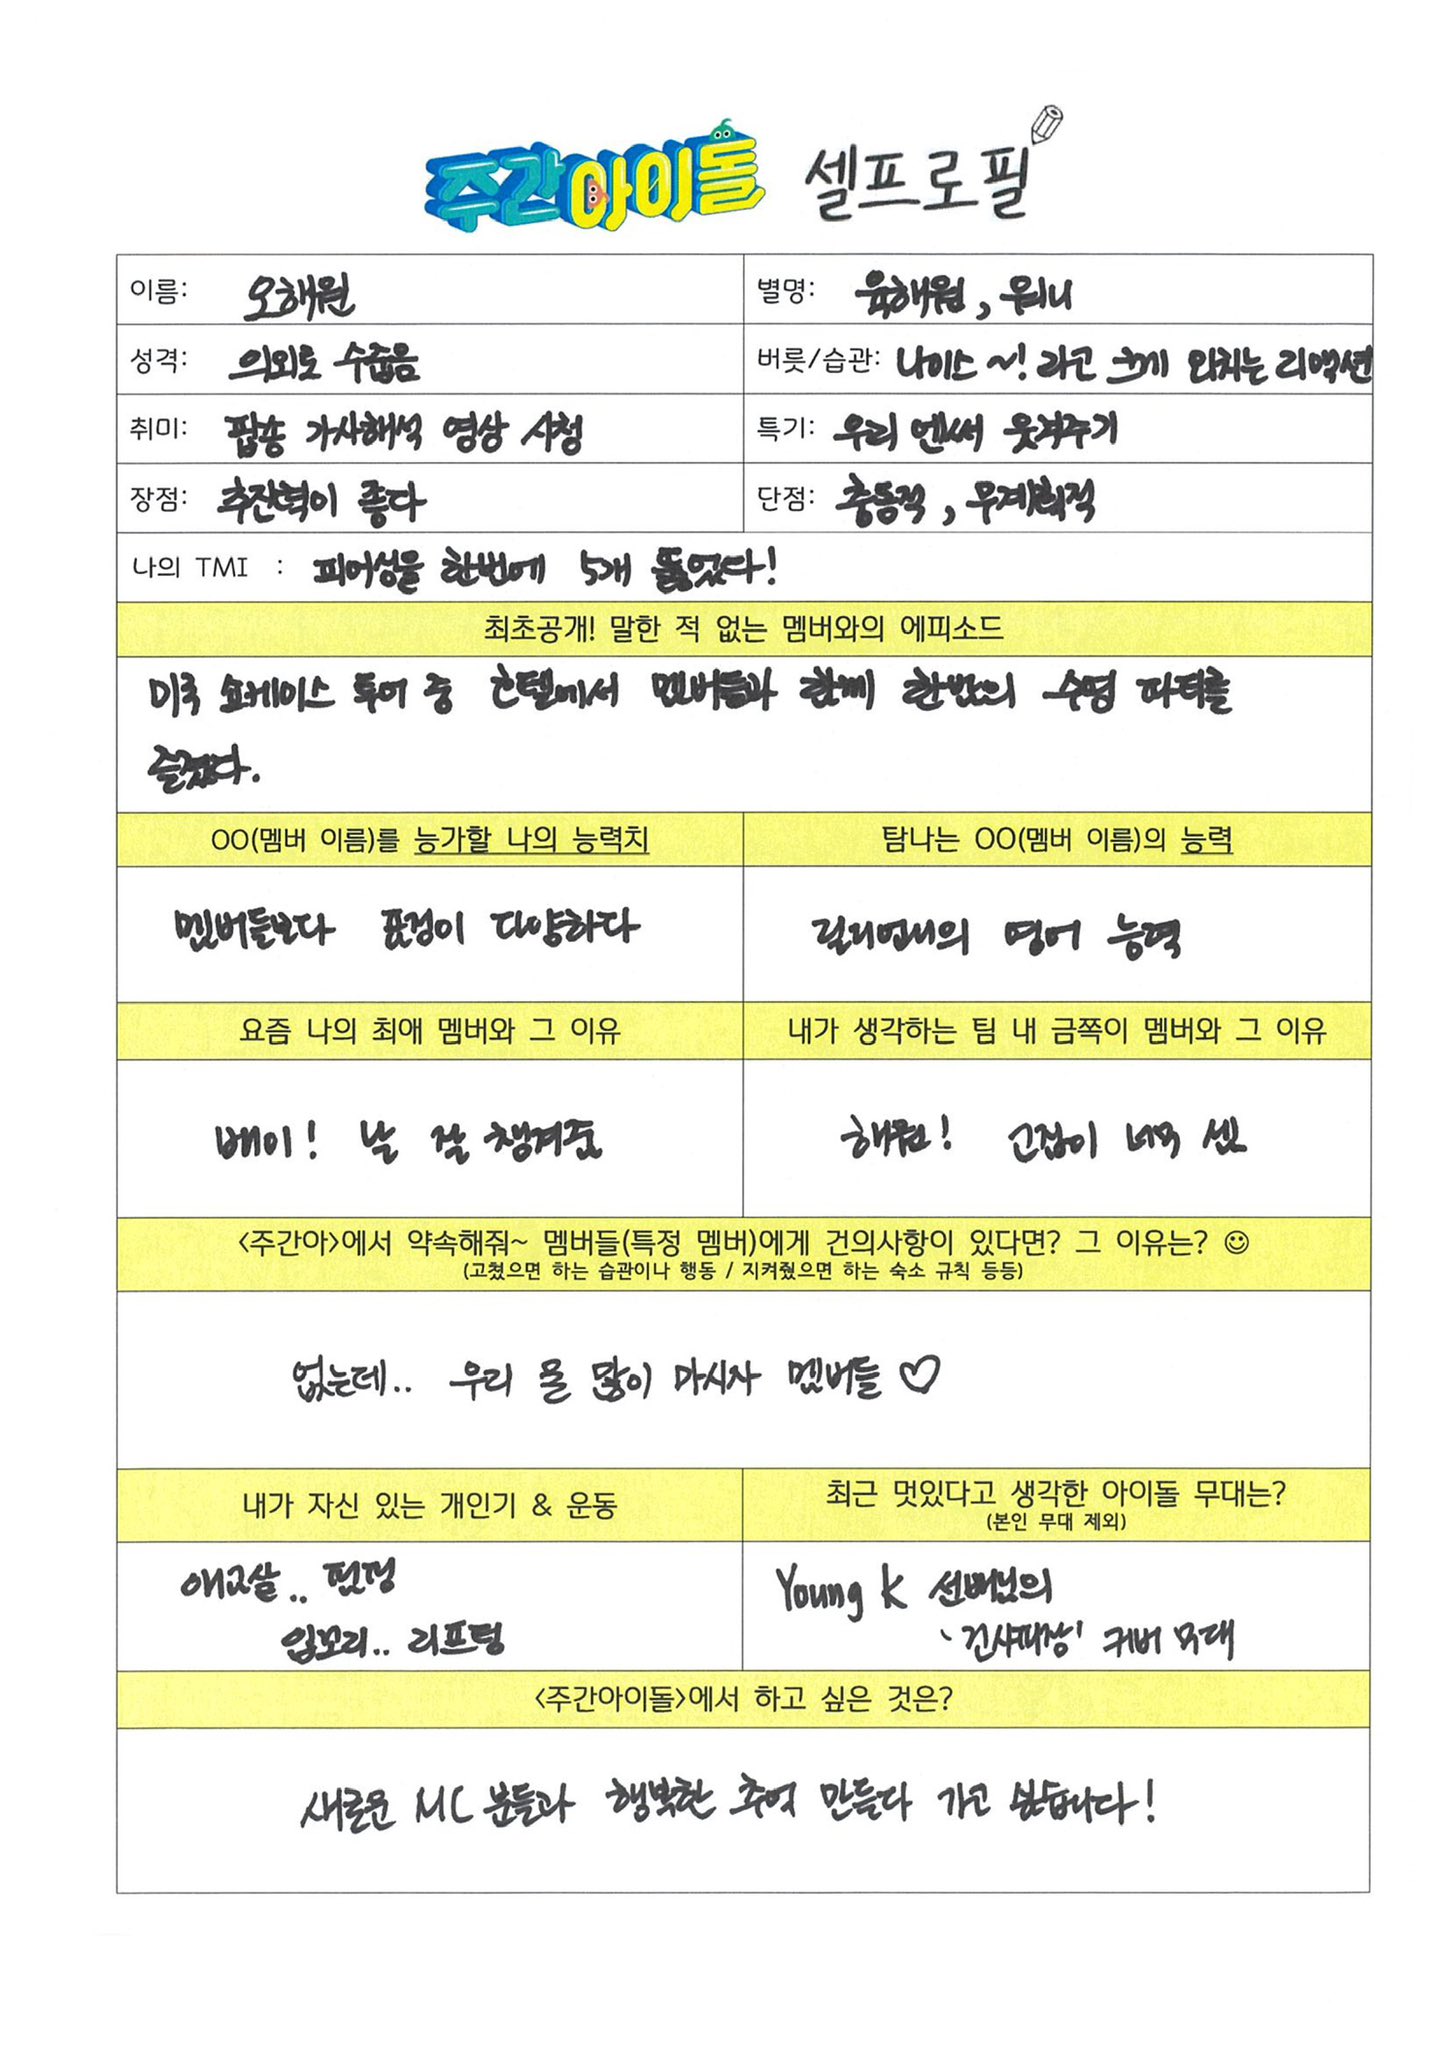 주간아이돌 셀프로필
이름: 오해원
별명: 육해원, 워니
성격: 의외로 수줍음
버릇/습관: 나이스~! 라고 크게 외치는 리액션
취미: 팝송 가사해석 영상 시청
특기: 우리 엔써 웃겨주기
장점: 추진력이 좋다
단점: 충동적, 무계획적
나의 TMI : 피어싱을 한번에 5개 뚫었다!
최초공개! 말한 적 없는 멤버와의 에피소드
미국 쇼케이스 투어 중 호텔에서 멤버들과 함께 한밤의 수영 파티를
즐겼다.
OO(멤버 이름)를 능가할 나의 능력치
탐나는 OO(멤버 이름)의 능력
멤버들보다 표정이 다양하다
릴리언니의 영어 능력
요즘 나의 최애 멤버와 그 이유
내가 생각하는 팀 내 금쪽이 멤버와 그 이유
배이! 날 잘 챙겨줌
해원! 고집이 너무 셈
<주간아>에서 약속해줘~ 멤버들(특정 멤버)에게 건의사항이 있다면? 그 이유는? ☺
(고쳤으면 하는 습관이나 행동 / 지켜줬으면 하는 숙소 규칙 등등)
없는데.. 우리 물 많이 마시자 멤버들 ♡
내가 자신 있는 개인기 & 운동
최근 멋있다고 생각한 아이돌 무대는?
(본인 무대 제외)
애교살.. 펌핑
입꼬리.. 리프팅
Young K 선배님의
'건사피장' 커버 무대
<주간아이돌>에서 하고 싶은 것은?
새로운 MC 분들과 행복한 추억 만들다 가고 싶습니다!